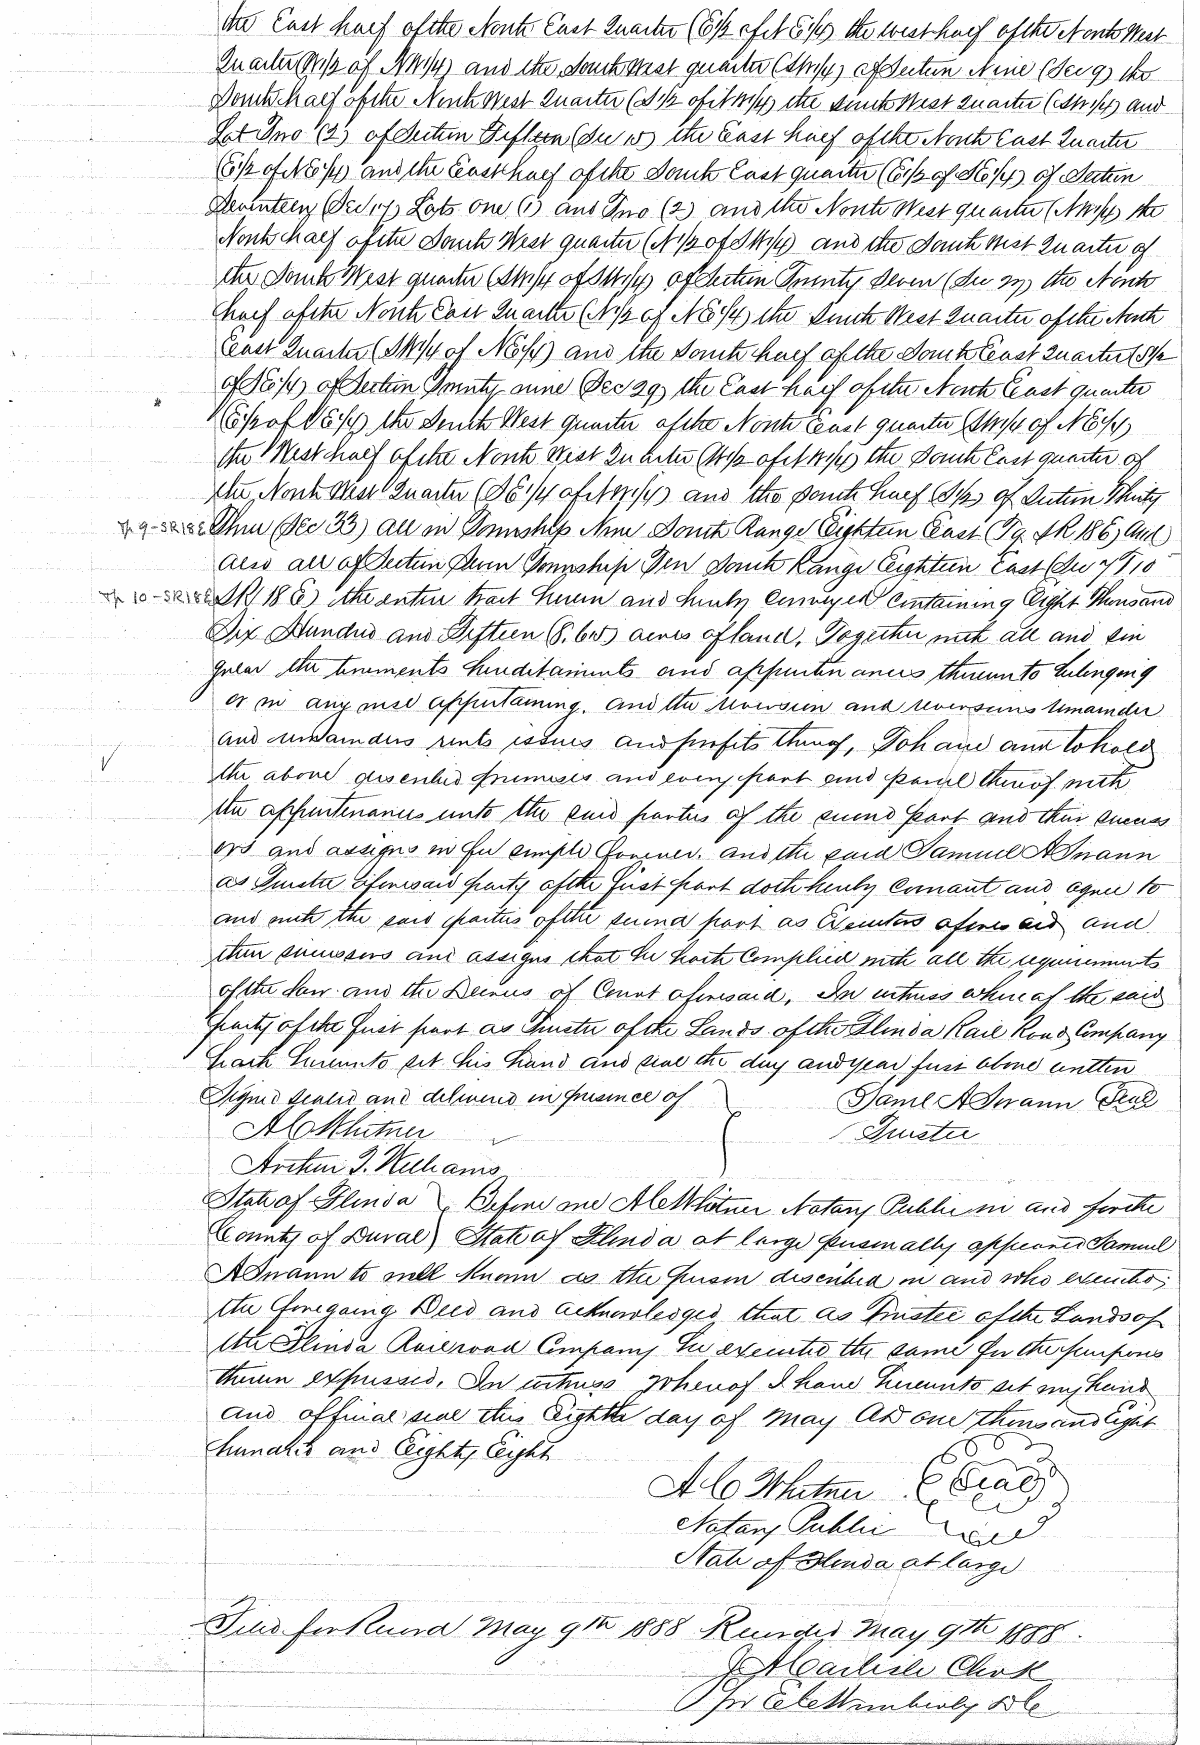 the East half of the North East Quarter (E1/2 of N E1/4) the west half of the North West
Quarter (W1/2 of NW1/4) and the South West quarter (SW1/4) of Section Nine (Sec 9) the
South half of the North West Quarter (S1/2 of N W1/4) the South West Quarter (SW1/4) and
Lot Two (2) of Section Fifteen (Sec 15) the East half of the North East Quarter
(E1/2 of N E1/4) and the East half of the South East quarter (E1/2 of S E1/4) of Section
Seventeen (Sec 17) Lots one (1) and Two (2) and the North West quarter (NW1/4) the
North half of the South West quarter (N1/2 of S W1/4) and the South West Quarter of
the South West quarter (SW1/4 of SW1/4) of Section Twenty Seven (Sec 27) the North
half of the North East Quarter (N1/2 of N E1/4) the South West Quarter of the North
East Quarter (SW1/4 of N E1/4) and the South half of the South East Quarter (S1/2
of S E1/4) of Section Twenty nine (Sec 29) the East half of the North East quarter
(E1/2 of N E1/4) the South West quarter of the North East quarter (SW1/4 of N E1/4)
the West half of the North West Quarter (W1/2 of N W1/4) the South East quarter of
the North West Quarter (S E1/4 of N W1/4) and the South half (S1/2) of Section Thirty
Tp 9-SR18E Three (Sec 33) all in Township Nine South Range Eighteen East (T9. S R 18 E) And
also all of Section Seven Township Ten South Range Eighteen East (Sec 7 T 10
Tp 10-SR18E SR 18 E) the entire tract herein and hereby conveyed containing Eight Thousand
Six Hundred and Fifteen (8.615) acres of land. Together with all and sin
gular the tenements hereditaments and appurtenances thereunto belonging
or in any wise appertaining. and the reversion and reversions remainder
and remainders rents issues and profits thereof, To have and to hold
the above described premises and every part and parcel thereof with
the appurtenances unto the said parties of the second part and their success
ors and assigns in fee simple forever. and the said Samuel A Swann
as Trustee aforesaid party of the first part doth hereby covenant and agree to
and with the said parties of the second part as Executors aforesaid and
their successors and assigns that he hath complied with all the requirements
of the Law and the Decrees of Court aforesaid. In witness whereof the said
party of the first part as Trustee of the Lands of the Florida Rail Road Company
hath hereunto set his hand and seal the day and year first above written
Signed sealed and delivered in presence of } Saml A Swann Seal
A C Whitner Trustee
Arthur T. Williams
State of Florida } Before me A C Whitner Notary Public in and for the
County of Duval } State of Florida at large personally appeared Samuel
A Swann to well known as the person described in and who executed
the foregoing Deed and acknowledged that as Trustee of the Lands of
the Florida Railroad Company he executed the same for the purposes
therein expressed. In witness whereof I have hereunto set my hand
and official seal this Eighth day of May AD one thousand Eight
hundred and Eighty Eight
A C Whitner Seal
Notary Public
State of Florida at large
Filed for Record May 9th 1888 Recorded May 9th 1888.
J A Carlisle Clerk
Wimberly D C